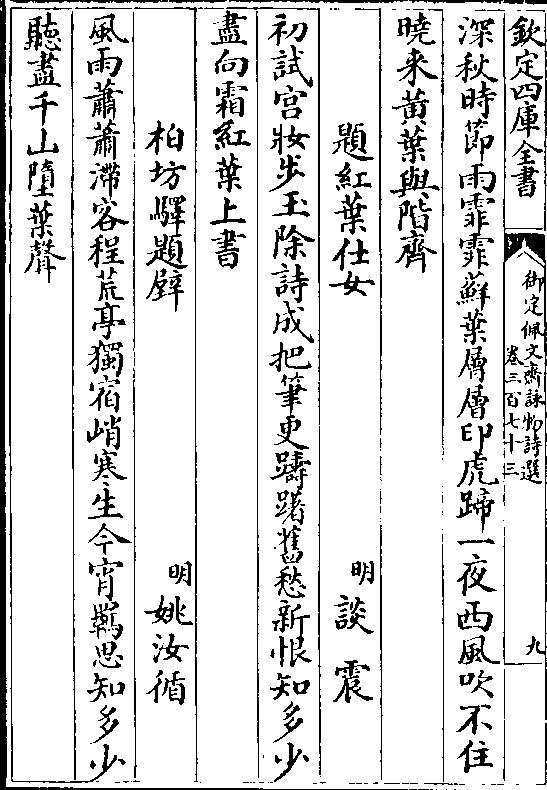 欽定四庫全書
御定佩文齋詠物詩選
卷三百七十三
九
深秋時節雨霏霏蘚葉層層印虎蹄一夜西風吹不住
曉来黄葉與階齊
題紅葉仕女
明 談震
初試宫妝步玉除詩成把筆更躊躇舊愁新恨知多少
盡向霜紅葉上書
柏坊驛題壁
明 姚汝循
風雨蕭蕭滯客程荒亭獨宿峭寒生今宵羈思知多少
聽盡千山墮葉聲